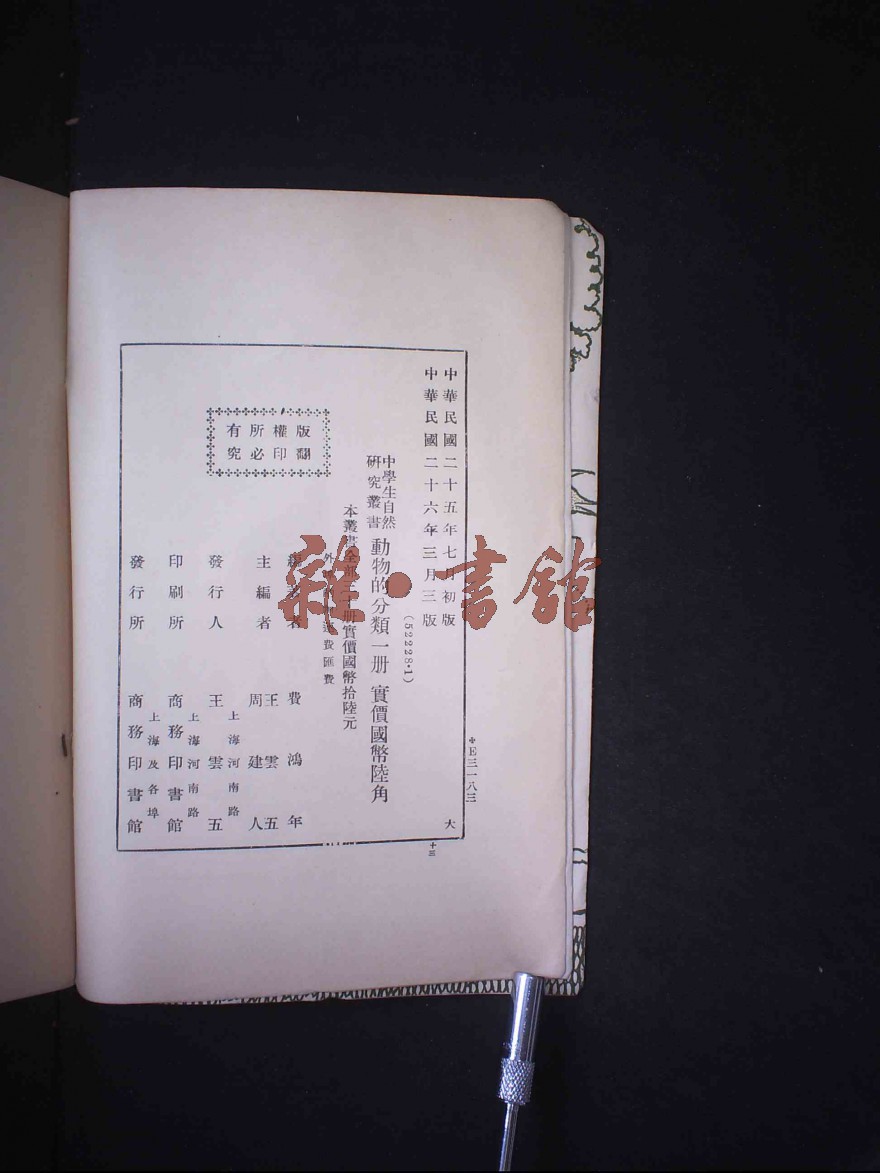 中華民國二十五年七月初版
中華民國二十六年三月三版
(52228·1)
中學生自然
研究叢書
動物的分類一册
實價國幣陸角
本叢書全部三十册實價國幣拾陸元
外埠酌加運費匯費
版權所有
翻印必究
編著者 費鴻年
主編者 王雲五
周建人
發行人 王雲五
上海河南路
印刷所 商務印書館
上海河南路
發行所 商務印書館
上海及各埠
E三一八三
大
十三
雜·書館